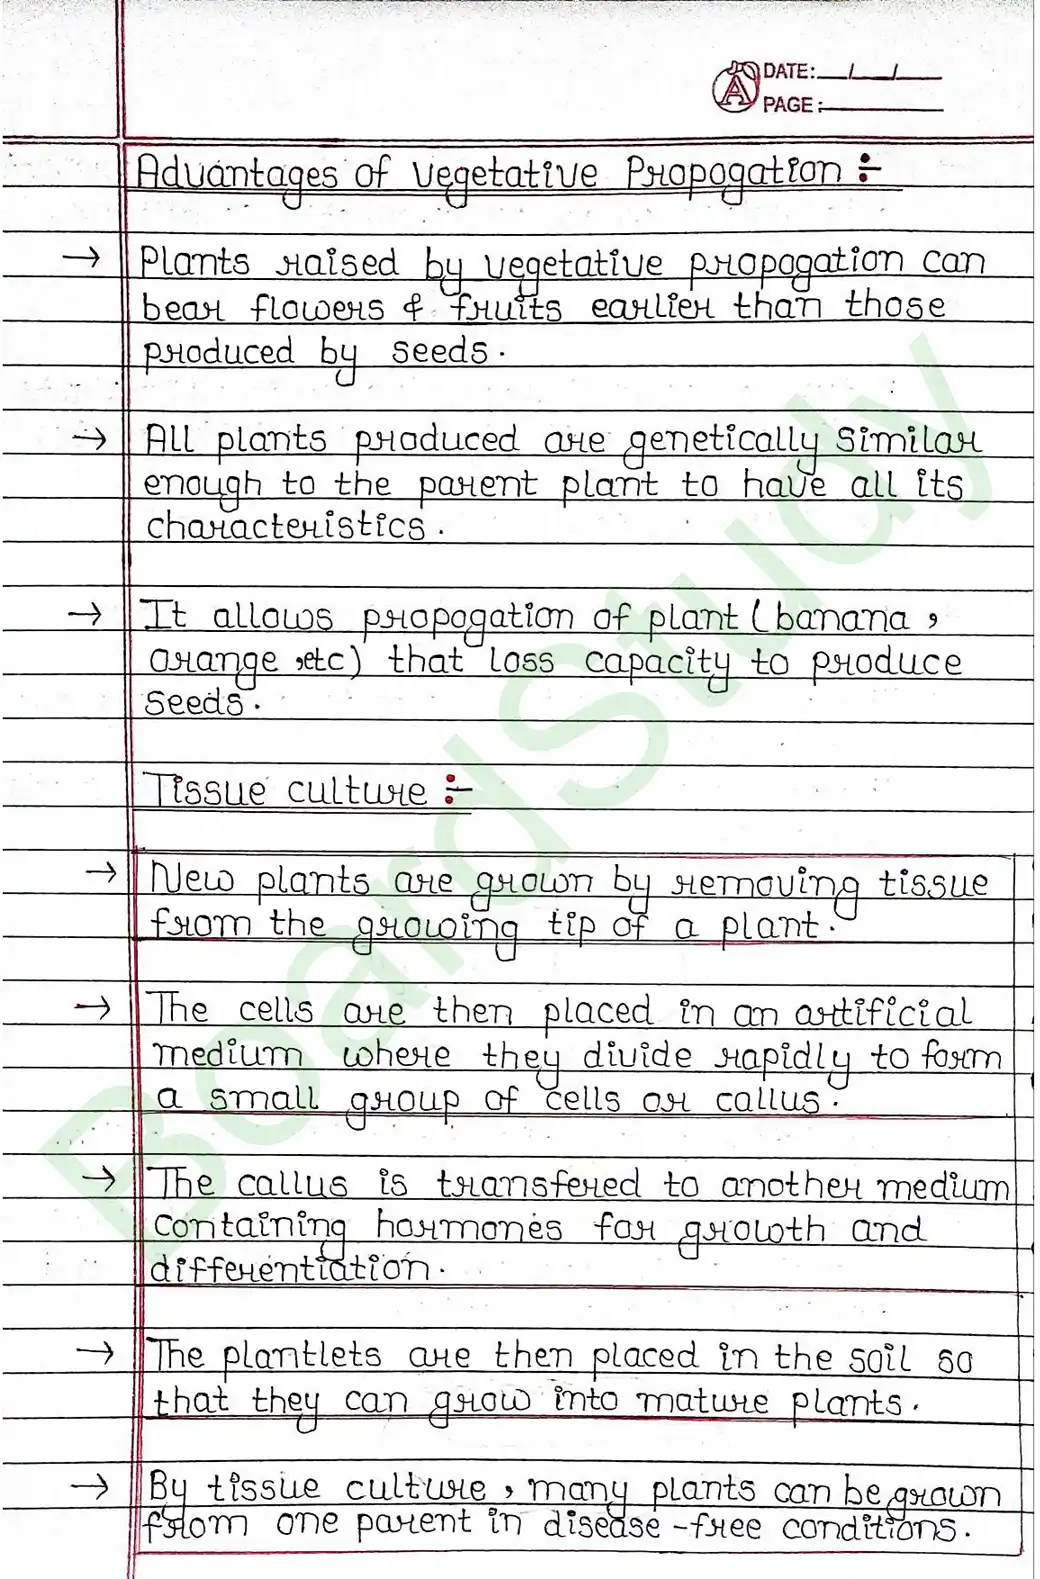 DATE: __/__/__
PAGE: ______
Advantages of Vegetative Propogation :-
→ Plants raised by vegetative propogation can
bear flowers & fruits earlier than those
produced by seeds.
→ All plants produced are genetically similar
enough to the parent plant to have all its
characteristics.
→ It allows propogation of plant (banana,
orange, etc) that loss capacity to produce
seeds.
Tissue culture :-
→ New plants are grown by removing tissue
from the growing tip of a plant.
→ The cells are then placed in an artificial
medium where they divide rapidly to form
a small group of cells or callus.
→ The callus is transfered to another medium
containing hormones for growth and
differentiation.
→ The plantlets are then placed in the soil so
that they can grow into mature plants.
→ By tissue culture, many plants can be grown
from one parent in disease-free conditions.
BoardStudy